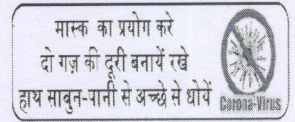 मास्क का प्रयोग करे
दो गज़ की दूरी बनायें रखे
हाथ साबुन-पानी से अच्छे से धोयें
Carona-Virus